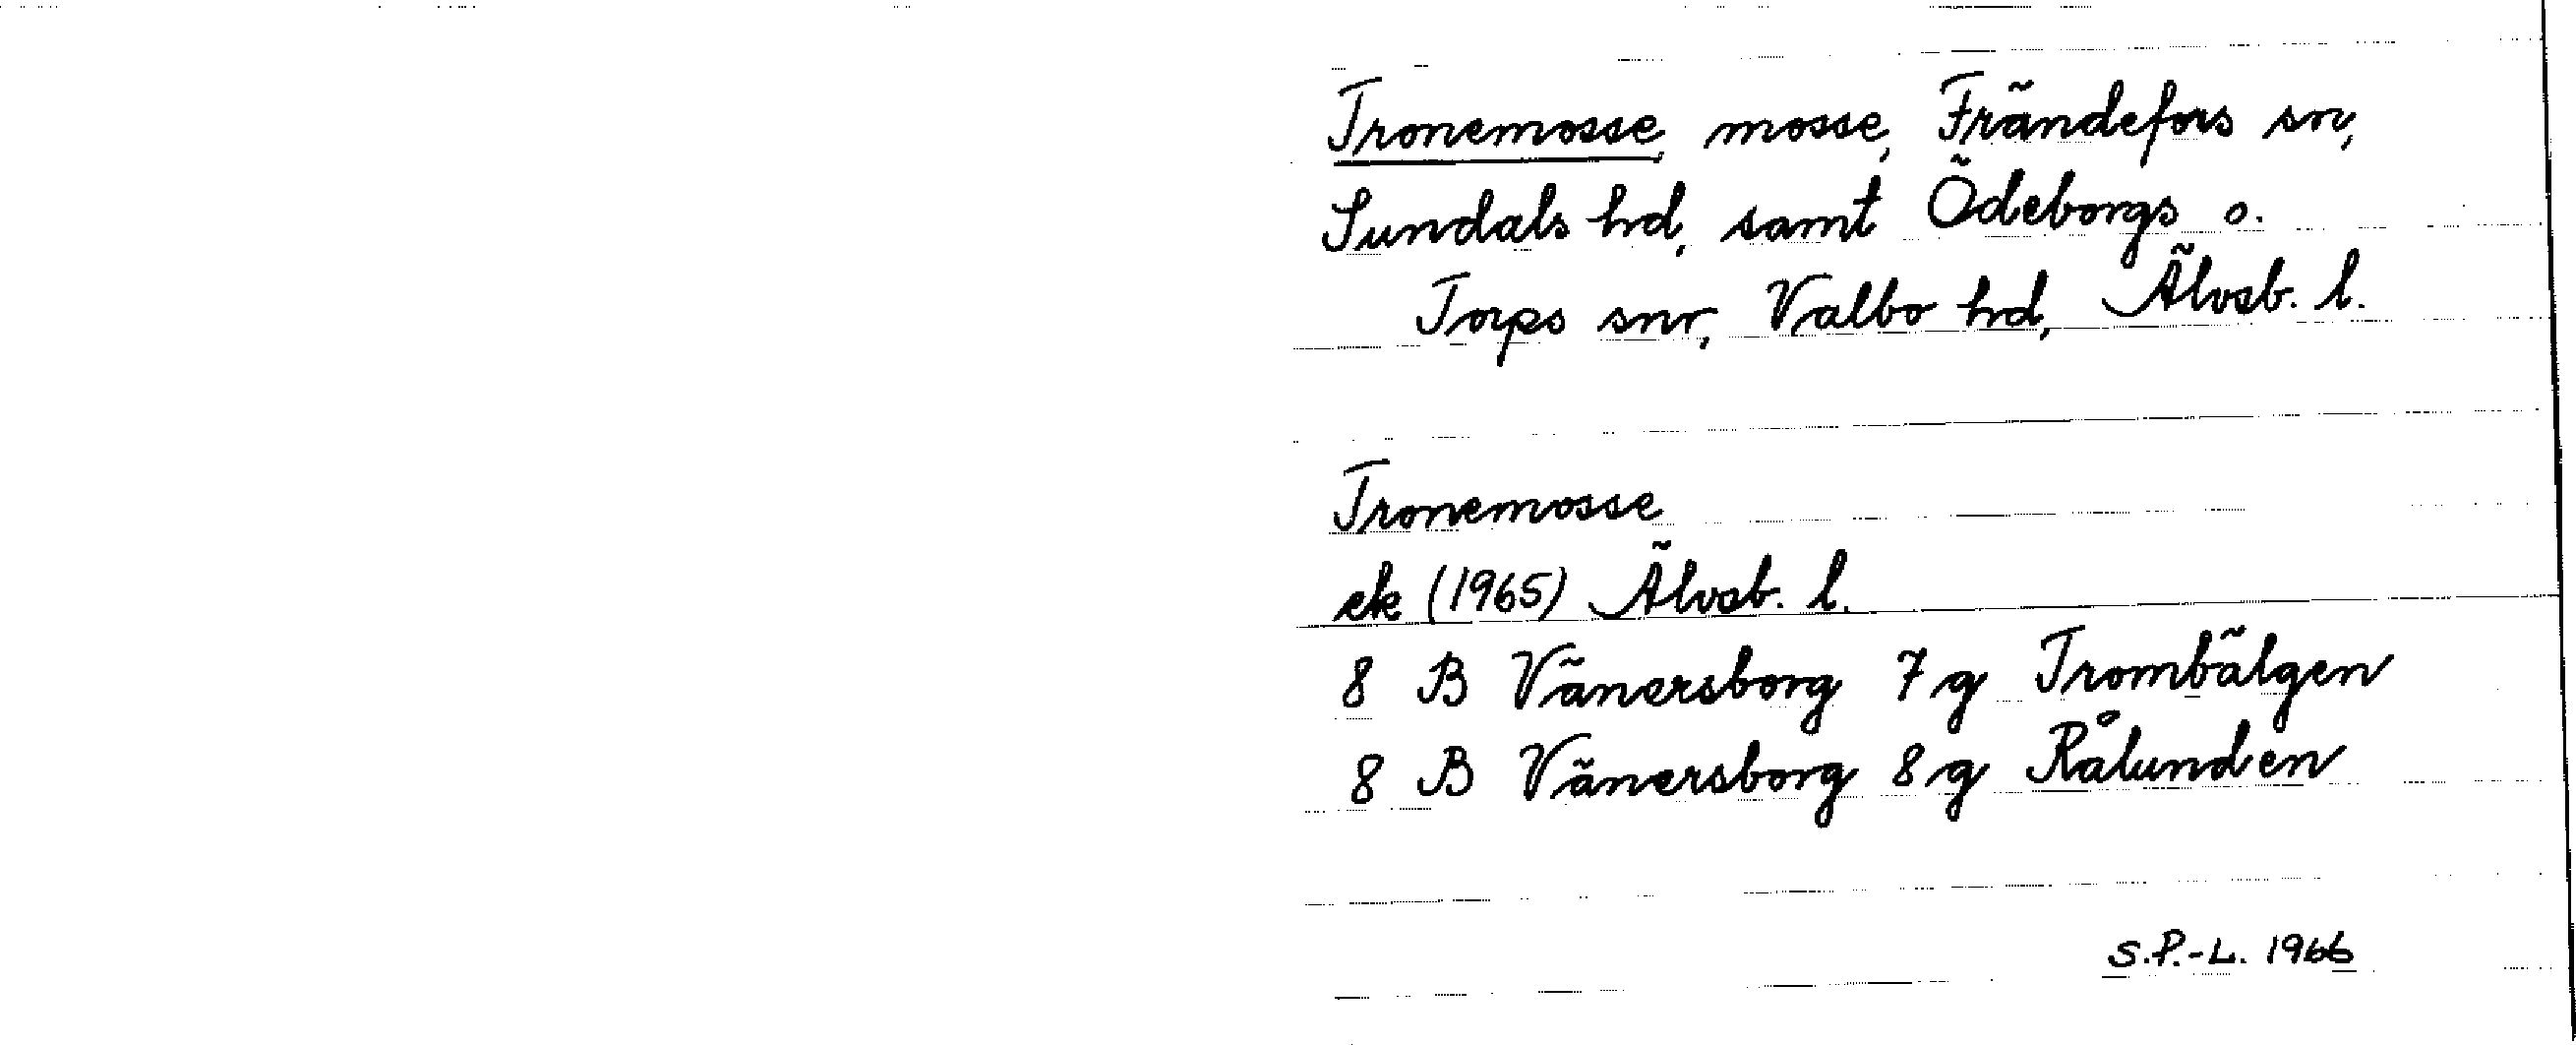 Tronemosse, mosse, Frändefors sn,
Sundals hd, samt Ödeborgs o.
Torps snr, Valbo hd, Älvsb. l.
Tronemosse
ek (1965) Älvsb. l.
8 B Vänersborg 7 g Trombälgen
8 B Vänersborg 8 g Rålunden
S.P.-L. 1966